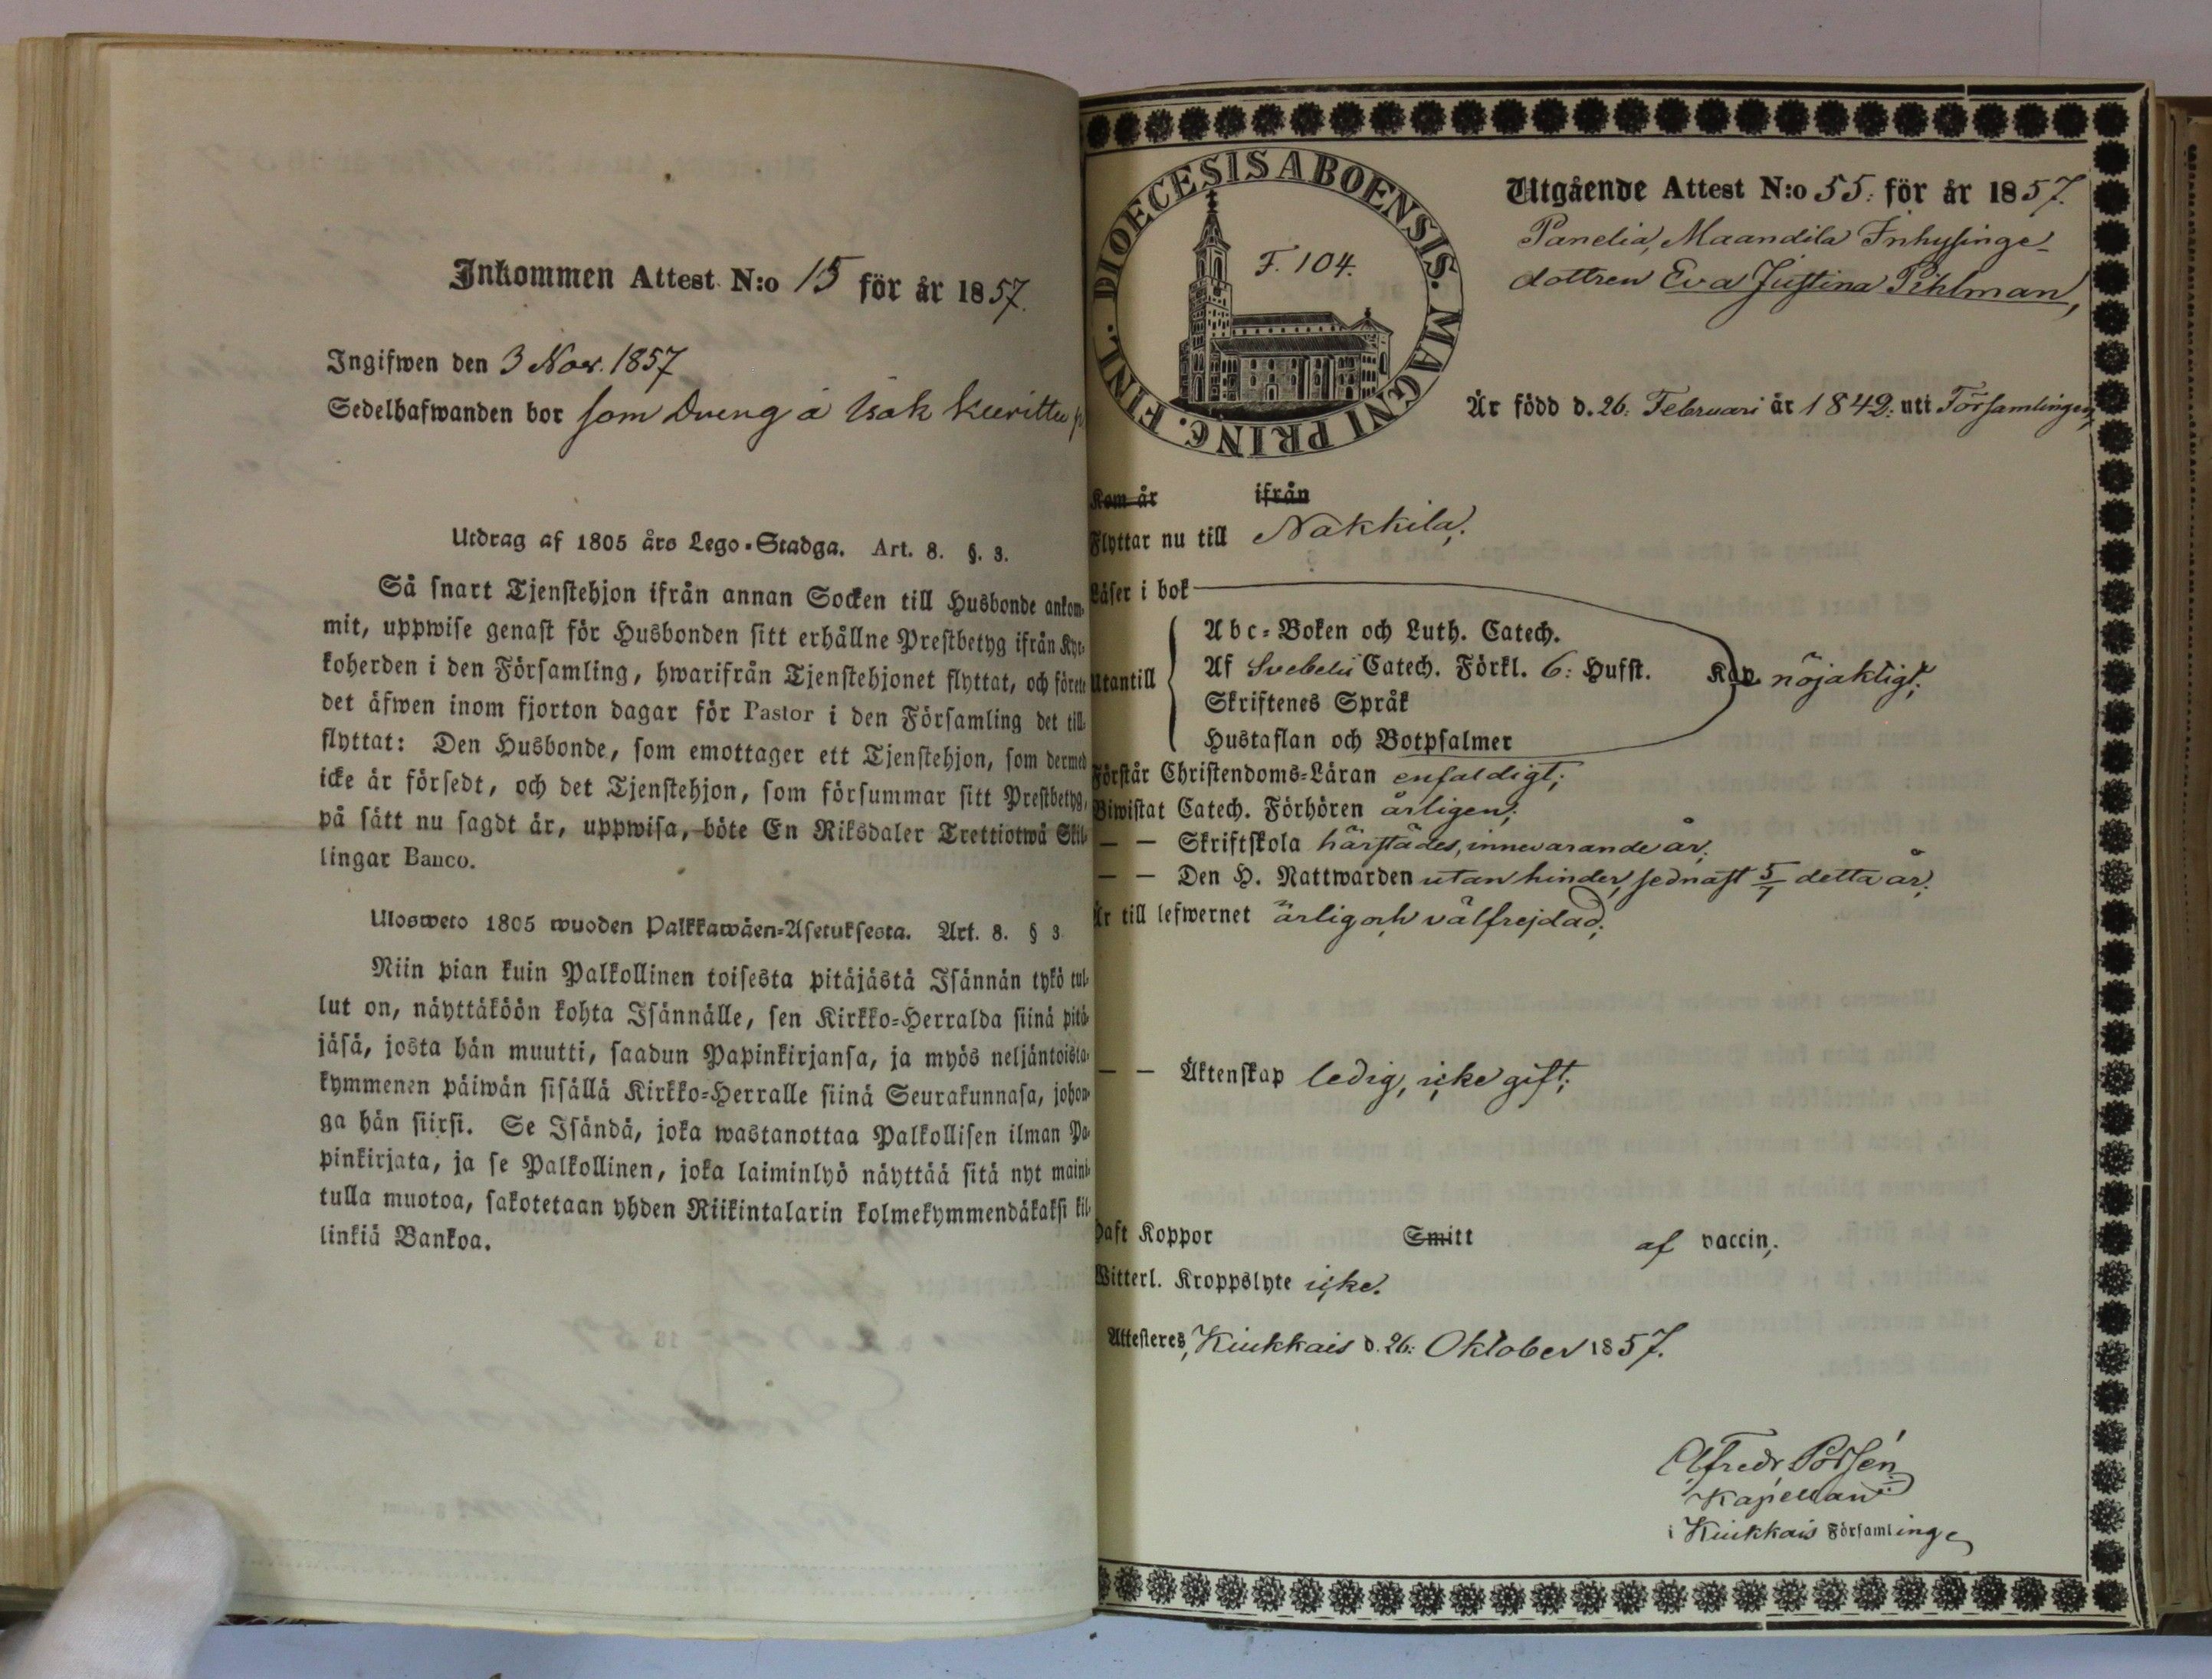 Inkommen Attest N:o 15 för år 1857.
Ingifwen den 3 Nov. 1857
Sedelhafwanden bor som Dreng å Isak
Utdrag af 1805 års Lego-Stadga. Art. 8. §. 3.
Så snart Tjenstehjon ifrån annan Socken till Husbonde ankom-
mit, uppwise genast för Husbonden sitt erhållne Prestbetyg ifrån Kyr-
koherden i den Församling, hwarifrån Tjenstehjonet flyttat, och förete
det äfwen inom fjorton dagar för Pastor i den Församling det till-
flyttat: Den Husbonde, som emottager ett Tjenstehjon, som dermed
icke är försedt, och det Tjenstehjon, som försummar sitt Prestbetyg,
på sätt nu sagdt är, uppwisa, böte En Riksdaler Trettiotwå Skil-
lingar Banco.
Ulosweto 1805 wuoden Palkkawäen-Asetuksesta. Art. 8. § 3
Niin pian kuin Palkollinen toisesta pitäjästä Isännän tykö tul-
lut on, näyttäköön kohta Isännälle, sen Kirkko-Herralda siinä pitä-
jäsä, josta hän muutti, saadun Papinkirjansa, ja myös neljäntoista-
kymmenen päiwän sisällä Kirkko-Herralle siinä Seurakunnasa, johon-
ga hän siirsi. Se Isändä, joka wastanottaa Palkollisen ilman Pa-
pinkirjata, ja se Palkollinen, joka laiminlyö näyttää sitä nyt maini-
tulla muotoa, sakotetaan yhden Riikintalarin kolmekymmendäkaksi kil-
linkiä Bankoa.
DIOECESIS ABOENSIS. MAGNI PRINC. FINL.
F. 104.
Utgående Attest N:o 55: för år 1857.
Panelia, Maandila Inhysinge-
dottren Eva Justina Pihlman,
Är född d. 26: Februari år 1842: uti Församlingen,
Kom år ifrån
Flyttar nu till Nakkila;
Läser i bok
Utantill
Abc-Boken och Luth. Catech.
Af Svebelii Catech. Förkl. 6: Hufst. Kap nöjaktigt;
Skriftenes Språk
Hustaflan och Botpsalmer
Förstår Christendoms-Läran enfaldigt;
Biwistat Catech. Förhören årligen;
— — Skriftskola härstädes, innevarande år;
— — Den H. Nattwarden utan hinder, sednast 5/7 detta år;
Är till lefwernet ärlig och välfrejdad;
— — Äktenskap ledig, icke gift;
Haft Koppor Smitt af vaccin;
Witterl. Kroppslyte icke.
Attesteres, Kiukkais d. 26: Oktober 1857.
Alfredr Porsén
Kapellan
i Kiukkais Församling